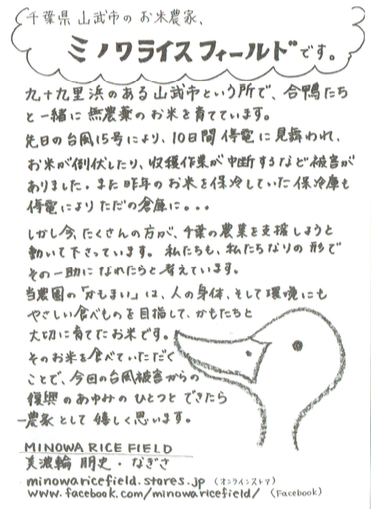 千葉県 山武市の お米農家、
ミノワライスフィールドです。
九十九里浜のある山武市という所で、合鴨たち
と一緒に無農薬のお米を育てています。
先日の台風15号により、10日間停電に見舞われ、
お米が倒伏したり、収穫作業が中断するなど被害が
ありました。また昨年のお米を保冷していた保冷庫も
停電によりただの倉庫に。。。
しかし今、たくさんの方が、千葉の農業を支援しようと
動いて下さっています。私たちも、私たちなりの形で
その一助になれたらと考えています。
当農園の「かもまい」は、人の身体、そして環境にも
やさしい食べものを目指して、かもたちと
大切に育てたお米です。
そのお米を食べていただく
ことで、今回の台風被害からの
復興のあゆみのひとつとできたら
一農家として嬉しく思います。
MINOWA RICE FIELD
美濃輪 朋史・なぎさ
minowaricefield.stores.jp (オンラインストア)
www.facebook.com/minowaricefield/ (Facebook)